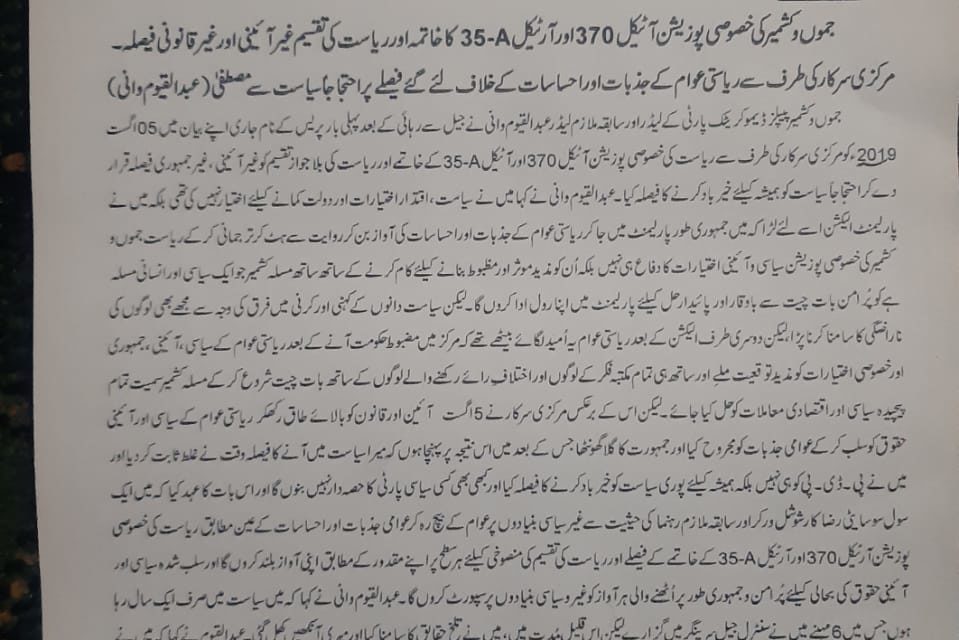 جموں و کشمیر کی خصوصی پوزیشن آٹیکل 370 اور آرٹیکل A-35 کا خاتمہ اور ریاست کی تقسیم غیر آئینی اور غیر قانونی فیصلہ۔
مرکزی سرکار کی طرف سے ریاستی عوام کے جذبات اور احساسات کے خلاف لئے گئے فیصلے پر احتجاجاً سیاست سے مصطفیٰ (عبدالقیوم وانی)
جموں و کشمیر پیپلز ڈیموکریٹک پارٹی کے لیڈر اور سابقہ ملازم لیڈر عبدالقیوم وانی نے جیل سے رہائی کے بعد پہلی بار پریس کے نام جاری اپنے بیان میں 05 اگست
2019ء کو مرکزی سرکار کی طرف سے ریاست کی خصوصی پوزیشن آٹیکل 370 اور آٹیکل A-35 کے خاتمے اور ریاست کی بلا جواز تقسیم کو غیر آئینی، غیر جمہوری فیصلہ قرار
دے کر احتجاجاً سیاست کو ہمیشہ کیلئے خیر باد کرنے کا فیصلہ کیا۔ عبدالقیوم وانی نے کہا میں نے سیاست، اقتدار اختیارات اور دولت کمانے کیلئے اختیار نہیں کی تھی بلکہ میں نے
پارلیمنٹ الیکشن اسے لئے لڑا کہ میں جمہوری طور پارلیمنٹ میں جا کر ریاستی عوام کے جذبات اور احساسات کی آواز بن کر روایت سے ہٹ کر ترجمانی کر کے ریاست جموں و
کشمیر کی خصوصی پوزیشن سیاسی و آئینی اختیارات کا دفاع ہی نہیں بلکہ اُن کو مذید موثر اور مظبوط بنانے کیلئے کام کرنے کے ساتھ ساتھ مسلہ کشمیر جو ایک سیاسی اور انسانی مسلہ
ہے کو پُر امن بات چیت سے باوقار اور پائیدار حل کیلئے پارلیمنٹ میں اپنا رول ادا کروں گا۔ لیکن سیاست دانوں کے کہنی اور کرنی میں فرق کی وجہ سے مجھے بھی لوگوں کی
ناراضگی کا سامنا کرنا پڑا، لیکن دوسری طرف الیکشن کے بعد ریاستی عوام یہ اُمید لگائے بیٹھے تھے کہ مرکز میں مضبوط حکومت آنے کے بعد ریاستی عوام کے سیاسی، آئینی، جمہوری
اور خصوصی اختیارات کو مذید توقعیت ملے اور ساتھ ہی تمام مکتبہ فکر کے لوگوں اور اختلافِ رائے رکھنے والے لوگوں کے ساتھ بات چیت شروع کر کے مسلہ کشمیر سمیت تمام
پیچیدہ سیاسی اور اقتصادی معاملات کو حل کیا جائے۔ لیکن اس کے برعکس مرکزی سرکار نے 5 اگست آئین اور قانون کو بالائے طاق رکھکر ریاستی عوام کے سیاسی اور آئینی
حقوق کو سلب کر کے عوامی جذبات کو مجروح کیا اور جمہورت کا گلا گھونٹھا جس کے بعد میں اس نتیجہ پر پہنچا ہوں کہ میرا سیاست میں آنے کا فیصلہ وقت نے غلط ثابت کر دیا اور
میں نے پی۔ڈی۔پی کو ہی نہیں بلکہ ہمیشہ کیلئے پوری سیاست کو خیر باد کرنے کا فیصلہ کیا اور کبھی بھی کسی سیاسی پارٹی کا حصہ دار نہیں بنوں گا اور اس بات کا عہد کیا کہ میں ایک
سول سوسایٹی رضا کار شوشل ورکر اور سابقہ ملازم رہنما کی حیثیت سے غیر سیاسی بنیادوں پر عوام کے بیچ رہ کر عوامی جذبات اور احساسات کے عین مطابق ریاست کی خصوصی
پوزیشن آرٹیکل 370 اور آرٹیکل A-35 کے خاتمے کے فیصلے اور ریاست کی تقسیم کی منصوخی کیلئے ہر سطح پر اپنے مقدور کے مطابق اپنی آواز بلند کروں گا اور سلب شدہ سیاسی اور
آئینی حقوق کی بحالی کیلئے پُر امن و جمہوری طور پر اُٹھنے والی ہر آواز کو غیر و سیاسی بنیادوں پر سپورٹ کروں گا۔ عبدالقیوم وانی نے کہا کہ میں سیاست میں صرف ایک سال رہا
ہوں جس میں 6 مہینے میں نے سنٹرل جیل سرینگر میں گزارے لیکن اس قلیل مُدت میں، میں نے تلخ حقایق کا سامنا کیا اور میری آنکھیں کھل گئی۔ عبدالقیوم نے کہا کہ میں نے